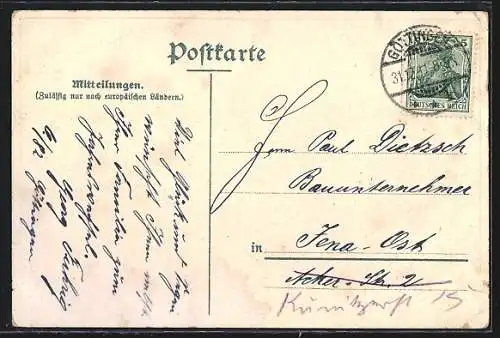 Postkarte
Mitteilungen.
(Zulässig nur nach europäischen Ländern.)
Viel Glück und Segen
wünscht Ihnen nebst
Ihrer Familie zum
Jahreswechsel
Georg
Göttingen
GÖTTINGEN
31.12.
5
DEUTSCHES REICH
Herrn Paul Dietzsch
Bauunternehmer
in Jena-Ost
Acker-Str. 2
Kunitzerst 15